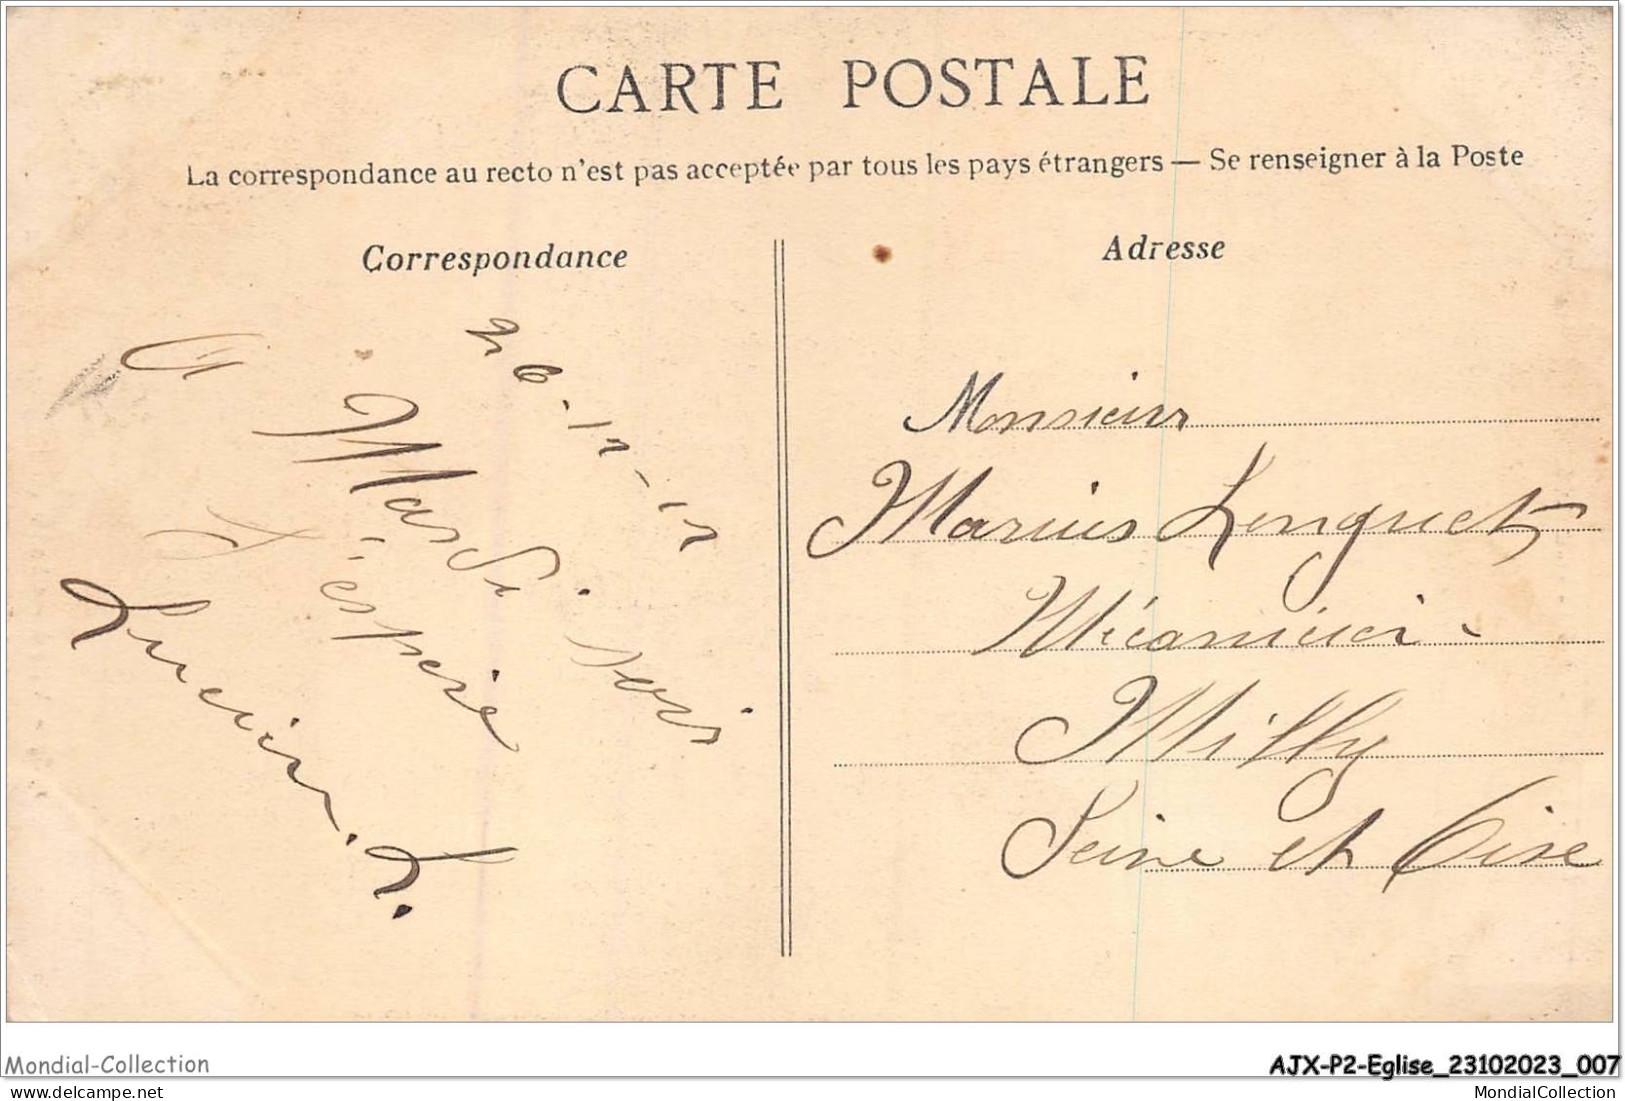 CARTE POSTALE
La correspondance au recto n'est pas acceptée par tous les pays étrangers — Se renseigner à la Poste
Correspondance
26-12-12
A Mardi soir
J'espère
Lucien. L.
Adresse
Monsieur
Marius Longuet
Mécanicien
Milly
Seine et Oise
Mondial-Collection
AJX-P2-Eglise_23102023_007
delcampe.net
MondialCollection